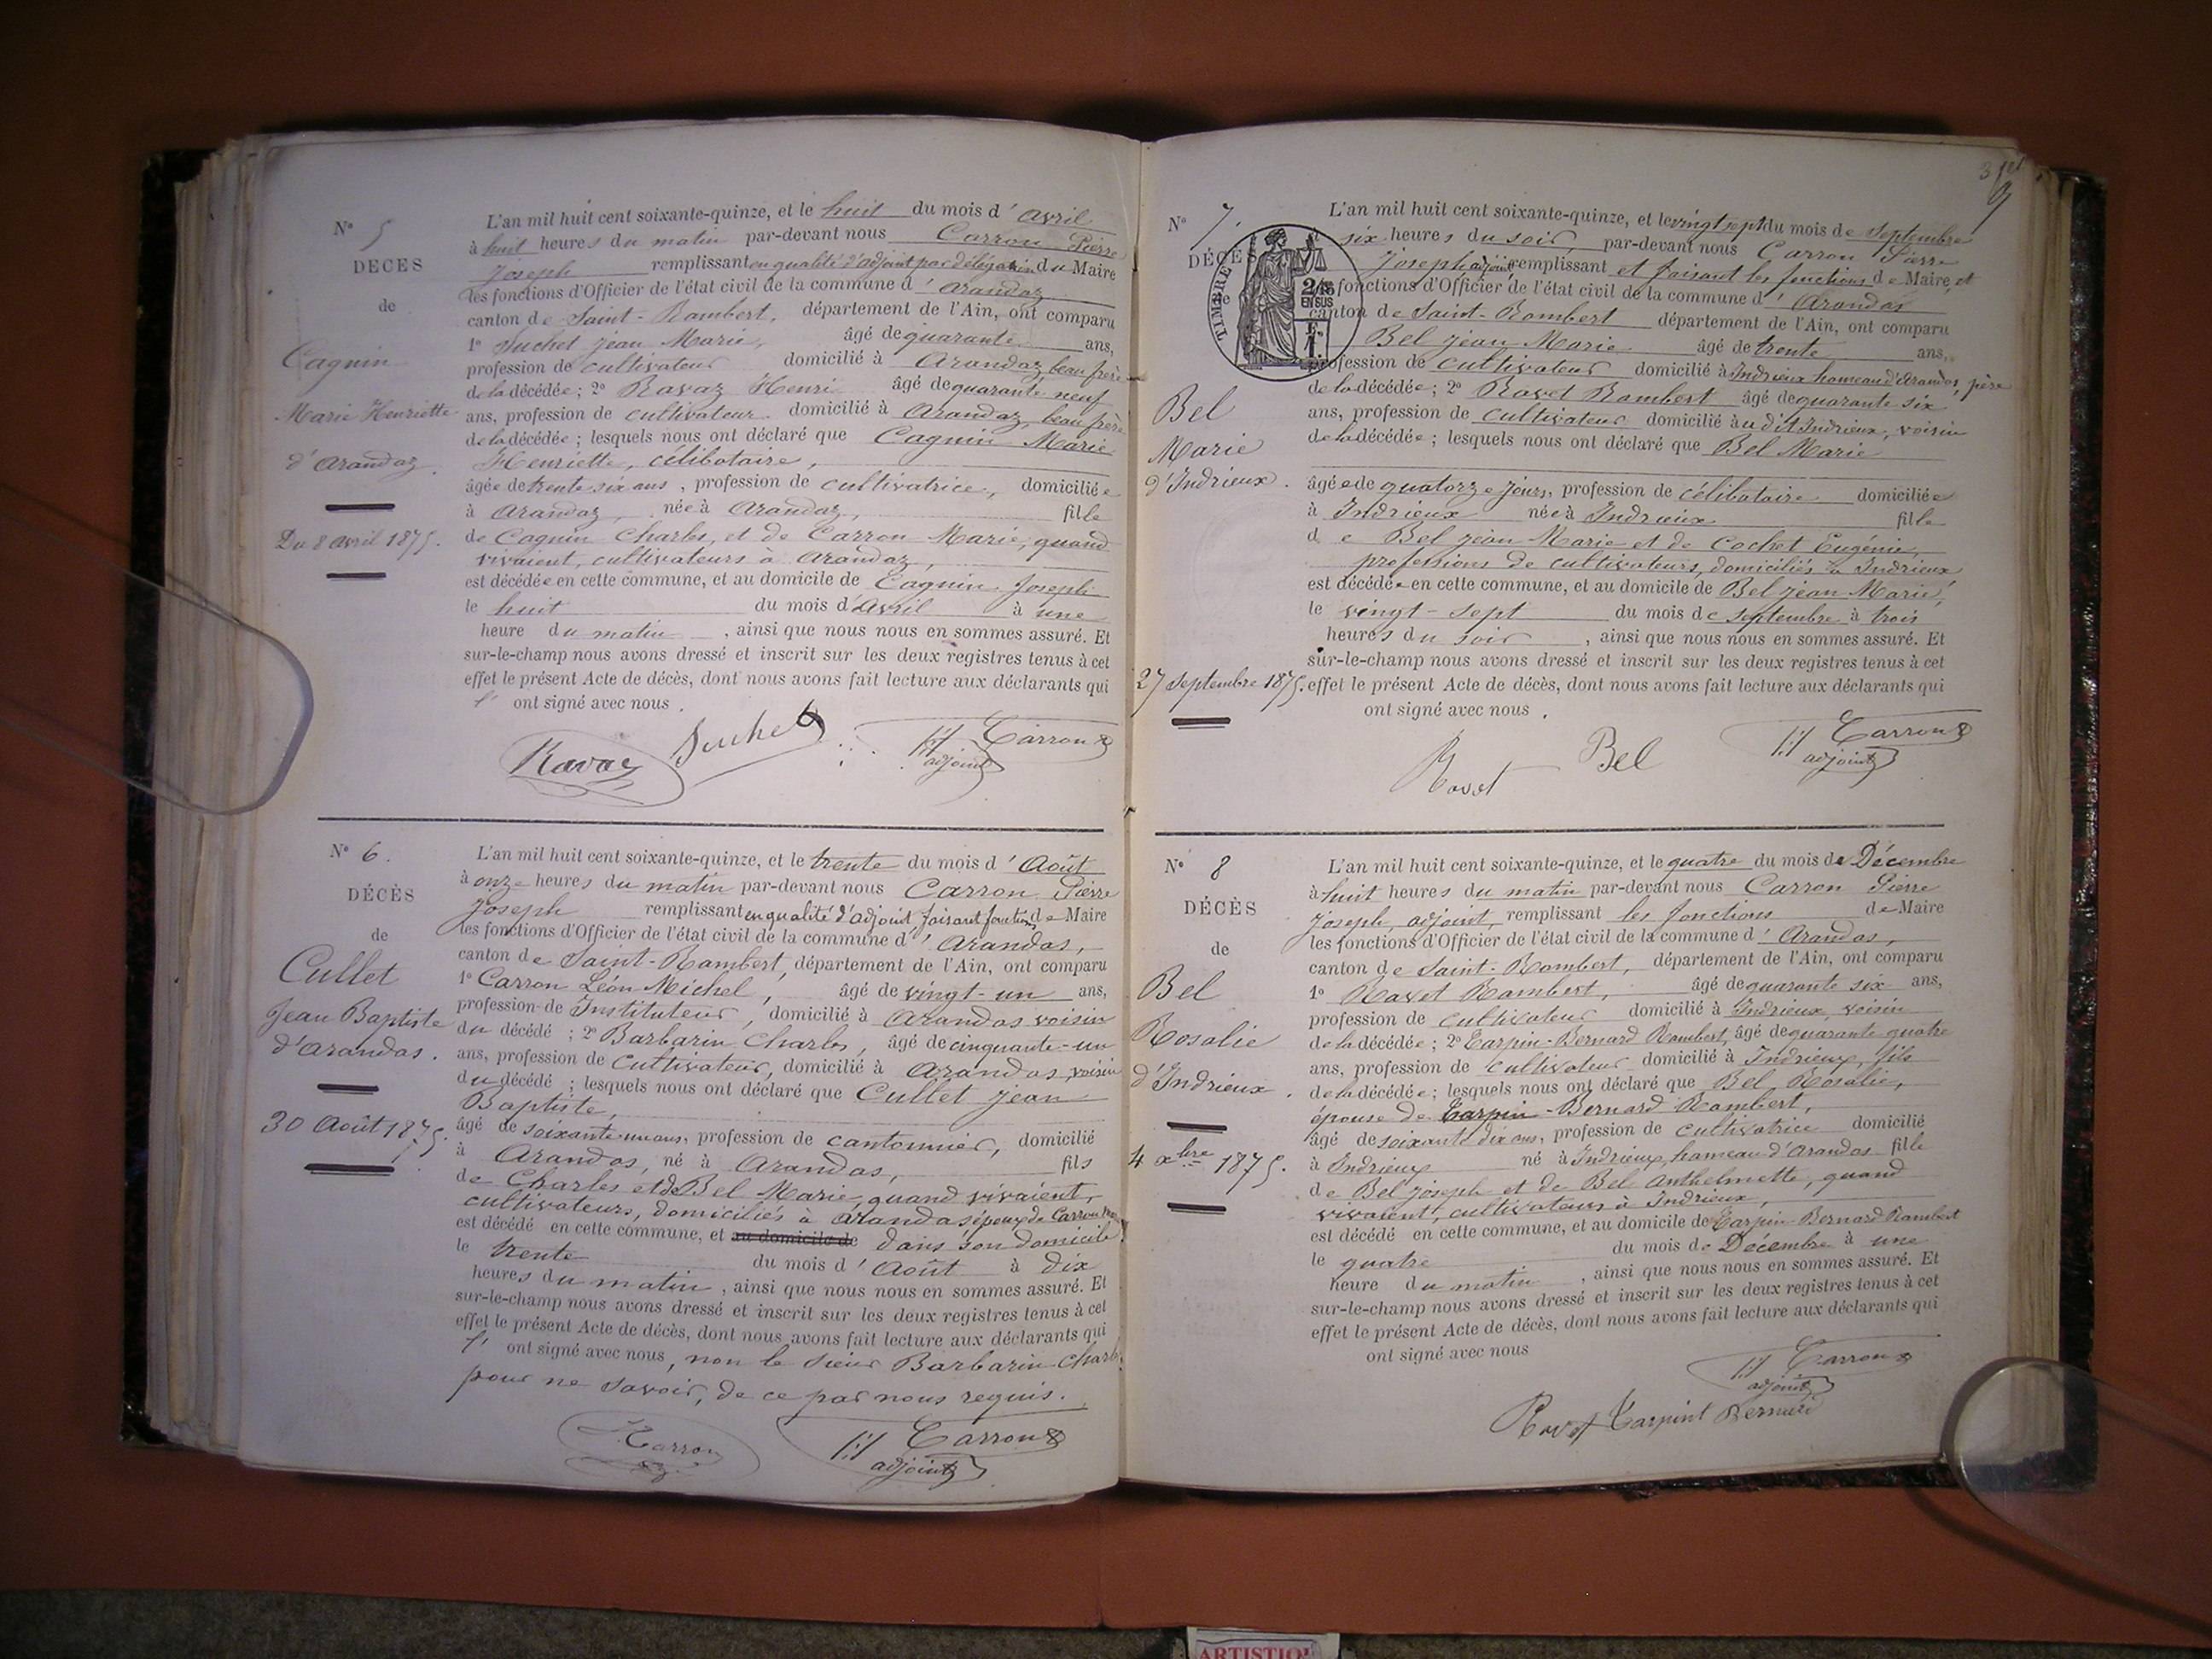 N° 5
DECES
de
Cagnin
Marie Henriette
d'Arandaz.
Du 8 avril 1875.
L'an mil huit cent soixante-quinze, et le huit du mois d'Avril
à huit heures du matin par-devant nous Carron Pierre
Joseph remplissant en qualité d'adjoint par délégation du Maire
les fonctions d'Officier de l'état civil de la commune d'Arandaz
canton de Saint-Rambert, département de l'Ain, ont comparu
1° Suchet jean Marie, âgé de quarante ans,
profession de cultivateur domicilié à Arandaz beau frère
de la décédée ; 2° Ravaz Henri âgé de quarante neuf
ans, profession de cultivateur domicilié à Arandaz, beau frère
de la décédée ; lesquels nous ont déclaré que Cagnin Marie
Henriette, célibataire,
âgée de trente six ans, profession de cultivatrice, domiciliée
à Arandaz, née à Arandaz, fille
de Cagnin Charles, et de Carron Marie, quand
vivaient, cultivateurs à Arandaz,
est décédée en cette commune, et au domicile de Cagnin Joseph
le huit du mois d'avril à une
heure du matin, ainsi que nous nous en sommes assuré. Et
sur-le-champ nous avons dressé et inscrit sur les deux registres tenus à cet
effet le présent Acte de décès, dont nous avons fait lecture aux déclarants qui
ont signé avec nous.
Ravaz Suchet Carron
adjoint
N° 6.
DÉCÈS
de
Cullet
Jean Baptiste
d'Arandas.
30 Août 1875.
L'an mil huit cent soixante-quinze, et le trente du mois d'Août
à onze heures du matin par-devant nous Carron Pierre
Joseph remplissant en qualité d'adjoint faisant fonctions de Maire
les fonctions d'Officier de l'état civil de la commune d'Arandas,
canton de Saint-Rambert, département de l'Ain, ont comparu
1° Carron Léon Michel, âgé de vingt-un ans,
profession de Instituteur, domicilié à Arandas voisin
du décédé ; 2° Barbarin Charles, âgé de cinquante-un
ans, profession de Cultivateur, domicilié à Arandas, voisin
du décédé ; lesquels nous ont déclaré que Cullet jean
Baptiste,
âgé de soixante un ans, profession de cantonnier, domicilié
à Arandas, né à Arandas, fils
de Charles et de Bel Marie, quand vivaient,
cultivateurs, domiciliés à Arandas, époux de Carron
est décédé en cette commune, et au domicile de dans son domicile
le trente du mois d'Août à dix
heures du matin, ainsi que nous nous en sommes assuré. Et
sur-le-champ nous avons dressé et inscrit sur les deux registres tenus à cet
effet le présent Acte de décès, dont nous avons fait lecture aux déclarants qui
ont signé avec nous, non le sieur Barbarin Charles
pour ne savoir, de ce par nous requis.
Carron Carron
adjoint
N° 7.
DÉCÈS
TIMBRE
2/10
EN SUS
Bel
Marie
d'Indrieux.
27 septembre 1875.
L'an mil huit cent soixante-quinze, et le vingt sept du mois de septembre
six heures du soir par-devant nous Carron Pierre
Joseph adjoint remplissant et faisant les fonctions de Maire, et
fonctions d'Officier de l'état civil de la commune d'Arandas
canton de Saint-Rambert département de l'Ain, ont comparu
Bel jean Marie âgé de trente ans,
profession de cultivateur domicilié à Indrieux hameau d'Arandas, père
de la décédée ; 2° Ravet Rambert âgé de quarante six
ans, profession de cultivateur domicilié au dit Indrieux, voisin
de la décédée ; lesquels nous ont déclaré que Bel Marie
âgée de quatorze jours, profession de célibataire domiciliée
à Indrieux née à Indrieux fille
de Bel jean Marie et de Cochet Eugénie,
professions de cultivateurs, domiciliés à Indrieux
est décédée en cette commune, et au domicile de Bel jean Marie,
le vingt-sept du mois de septembre à trois
heures du soir, ainsi que nous nous en sommes assuré. Et
sur-le-champ nous avons dressé et inscrit sur les deux registres tenus à cet
effet le présent Acte de décès, dont nous avons fait lecture aux déclarants qui
ont signé avec nous.
Ravet Bel Carron
adjoint
N° 8
DÉCÈS
de
Bel
Rosalie
d'Indrieux.
4 xbre 1875.
L'an mil huit cent soixante-quinze, et le quatre du mois de Décembre
à huit heures du matin par-devant nous Carron Pierre
Joseph, adjoint, remplissant les fonctions de Maire
les fonctions d'Officier de l'état civil de la commune d'Arandas,
canton de Saint-Rambert, département de l'Ain, ont comparu
1° Ravet Rambert, âgé de quarante six ans,
profession de cultivateur domicilié à Indrieux, voisin
de la décédée ; 2° Tarpin-Bernard Rambert, âgé de quarante quatre
ans, profession de cultivateur domicilié à Indrieux, fils
de la décédée ; lesquels nous ont déclaré que Bel Rosalie,
épouse de Tarpin-Bernard Rambert,
âgé de soixante dix ans, profession de cultivatrice domicilié
à Indrieux né à Indrieux, hameau d'Arandas fille
de Bel Joseph et de Bel Anthelmette, quand
vivaient, cultivateurs à Indrieux,
est décédé en cette commune, et au domicile de Tarpin-Bernard Rambert
le quatre du mois de Décembre à une
heure du matin, ainsi que nous nous en sommes assuré. Et
sur-le-champ nous avons dressé et inscrit sur les deux registres tenus à cet
effet le présent Acte de décès, dont nous avons fait lecture aux déclarants qui
ont signé avec nous
Carron
adjoint
Ravet Tarpin Bernard